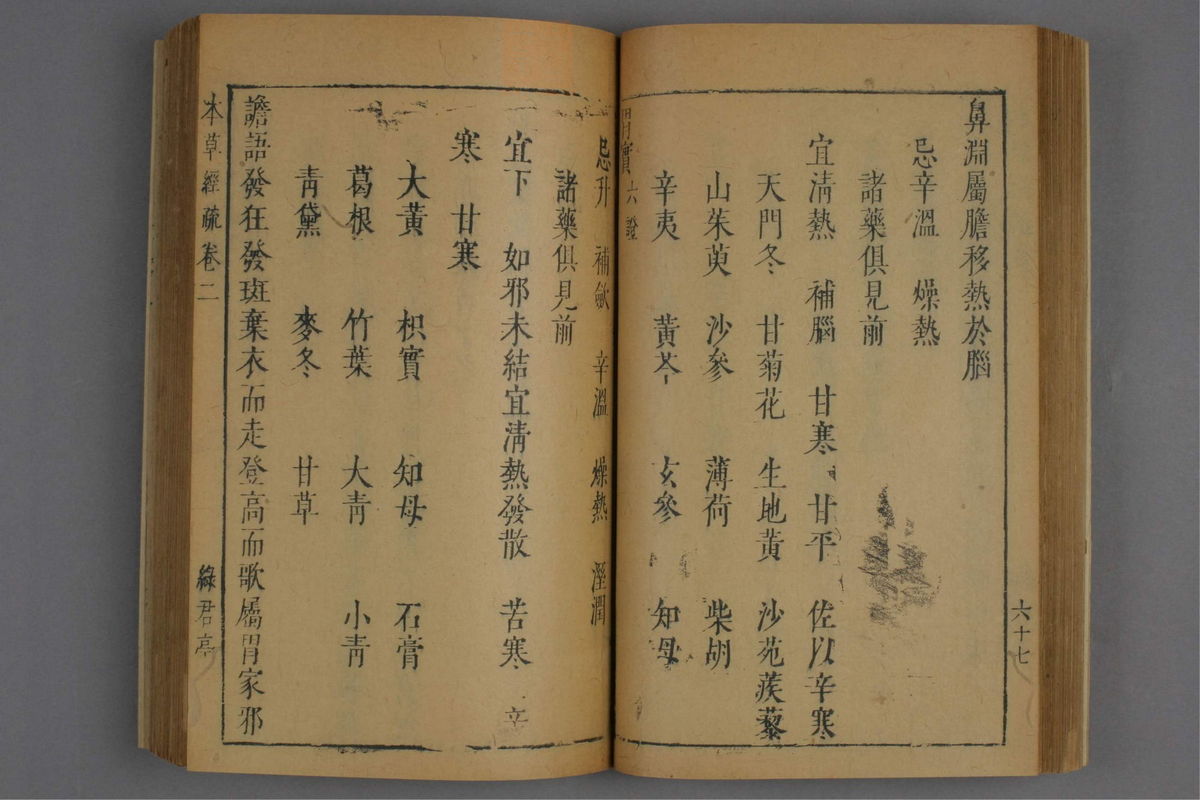 鼻淵屬膽移熱於腦
忌辛溫　燥熱
諸藥俱見前
宜淸熱　補腦　甘寒　甘平　佐以辛寒
天門冬　甘菊花　生地黃　沙苑蒺藜
山茱萸　沙參　薄荷　柴胡
辛夷　黃芩　玄參　知母
胃實六證
忌升　補歛　辛溫　燥熱　溼潤
諸藥俱見前
宜下　如邪未結宜淸熱發散　苦寒　辛
寒　甘寒
大黃　枳實　知母　石膏
葛根　竹葉　大靑　小靑
靑黛　麥冬　甘草
譫語發狂發斑棄衣而走登高而歌屬胃家邪
本草經疏卷二
綠君亭
六十七